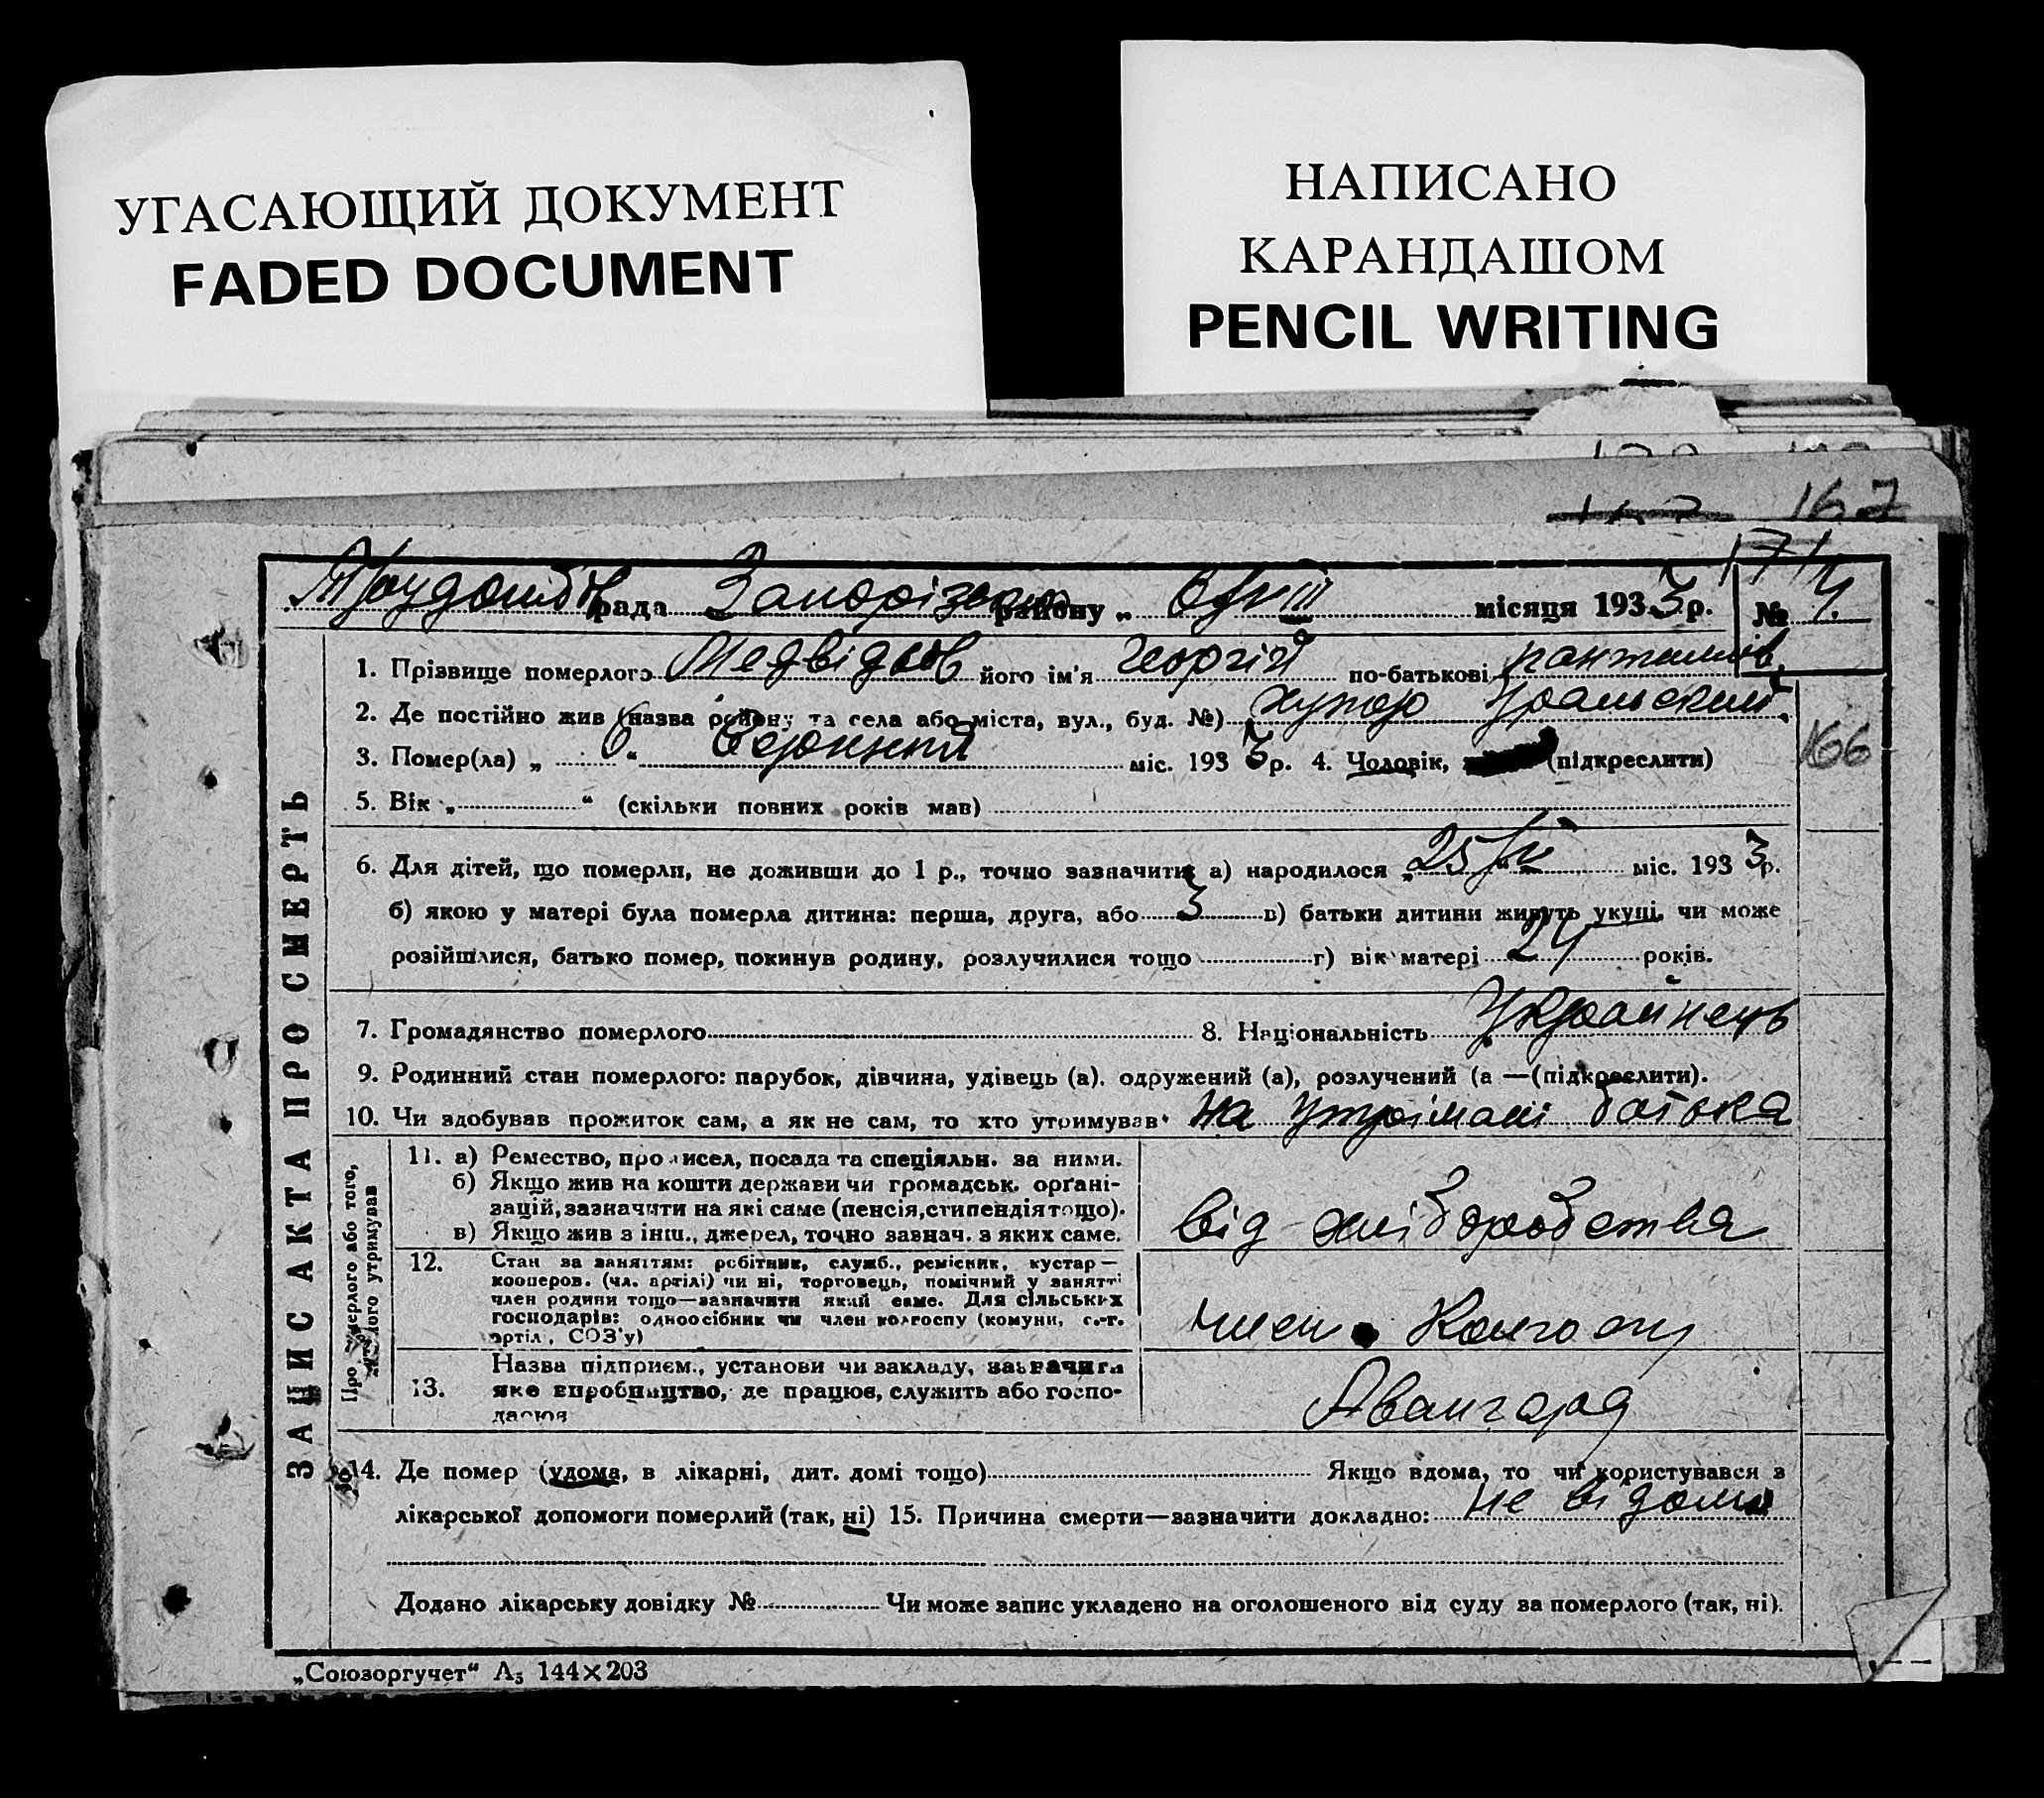 УГАСАЮЩИЙ ДОКУМЕНТ
FADED DOCUMENT
НАПИСАНО
КАРАНДАШОМ
PENCIL WRITING
167
171
рада Запорізького району „ 6/VIII місяця 1933 р. № 4.
1. Прізвище померлого Медвідков його ім'я Георгій по-батькові
2. Де постійно жив (назва району та села або міста, вул., буд. №) хутор Уральский
166
3. Помер(ла) „ 6 “ Серпння міс. 1933 р. 4. Чоловік, (підкреслити)
5. Вік „ “ (скільки повних років мав)
6. Для дітей, що померли, не доживши до 1 р., точно зазначити: а) народилося „25/ міс. 1933 р.
б) якою у матері була померла дитина: перша, друга, або 3 в) батьки дитини живуть укупі, чи може
розійшлися, батько помер, покинув родину, розлучилися тощо г) вік матері 24 років.
7. Громадянство померлого 8. Національність Українець
9. Родинний стан померлого: парубок, дівчина, удівець (а). одружений (а), розлучений (а —(підкреслити).
10. Чи здобував прожиток сам, а як не сам, то хто утримував На утрімані батька
ЗАПИС АКТА ПРО СМЕРТЬ
Про померлого або того, хто його утримував
11. а) Ремество, промисел, посада та спеціяльн. за ними.
б) Якщо жив на кошти держави чи громадськ. орґані-
зацій, зазначити на які саме (пенсія, стипендія тощо).
в) Якщо жив з інш., джерел, точно зазнач. з яких саме.
від хліборобства
12. Стан за заняттям: робітник, служб., ремісник, кустар—
кооперов. (чл. артілі) чи ні, торговець, помічний у занятті
член родини тощо—зазначити який саме. Для сільських
господарів: одноосібник чи член колгоспу (комуни, с.-г.
артіл, СОЗ'у)
член Колгоспу
13. Назва підприєм., установи чи закладу, зазначити
яке виробництво, де працює, служить або госпо-
дарює
Авангард
14. Де помер (удома, в лікарні, дит. домі тощо) Якщо вдома, то чи користувався з
лікарської допомоги померлий (так, ні) 15. Причина смерти—зазначити докладно: не відома
Додано лікарську довідку № Чи може запис укладено на оголошеного від суду за померлого (так, ні).
„Союзоргучет“ А5 144×203